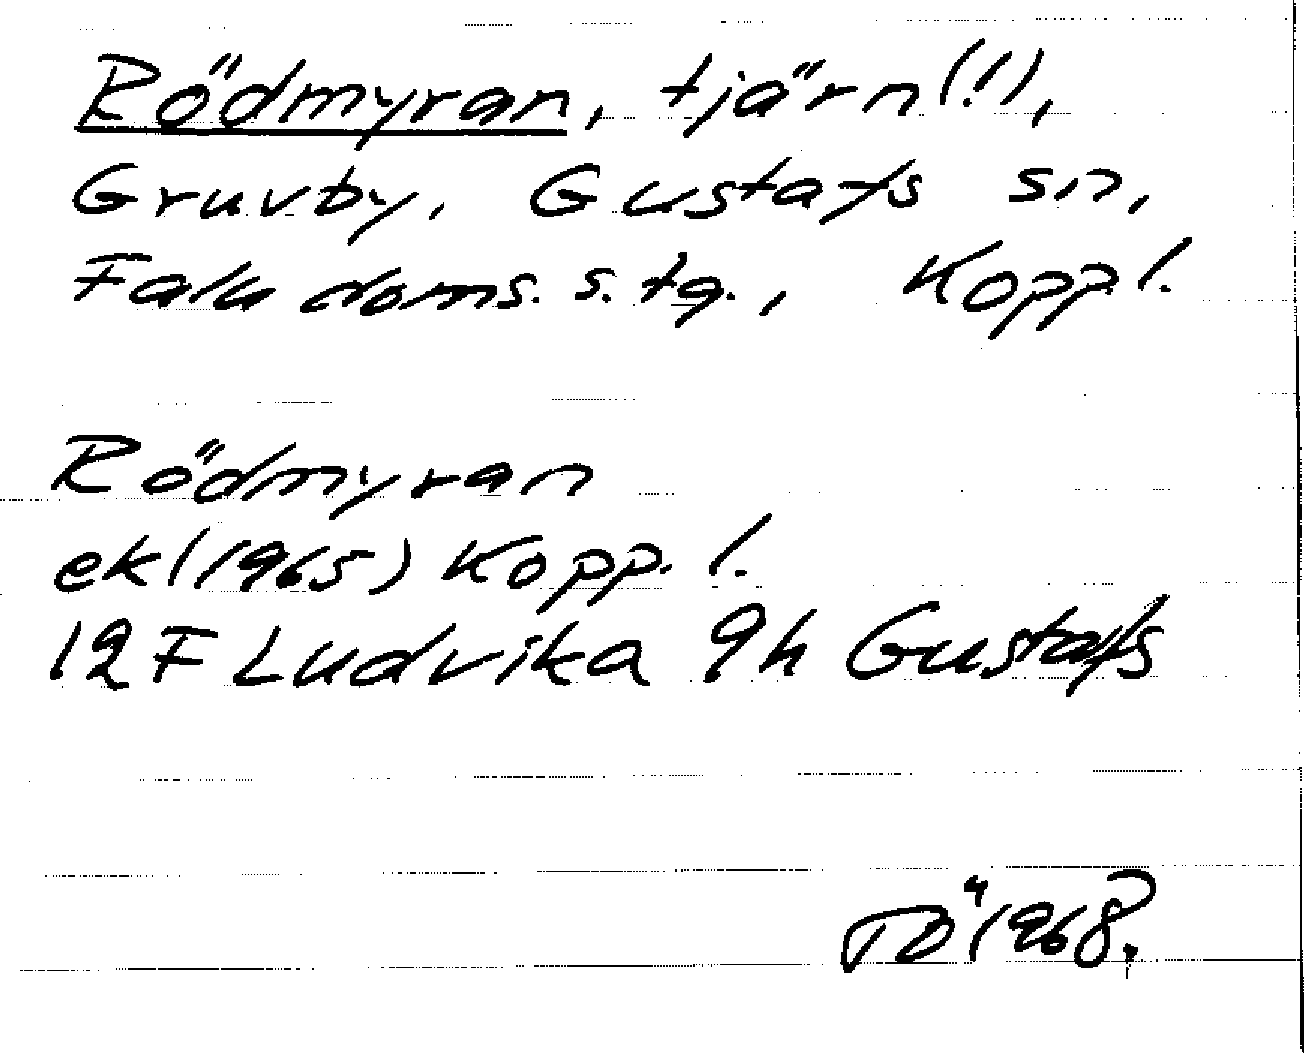 Rödmyran, tjärn(!),
Gruvby, Gustafs sn,
Falu doms. s. tg., Koppl.
Rödmyran
ek (1965) Kopp. l.
12 F Ludvika 9h Gustafs
TÖ 1968.